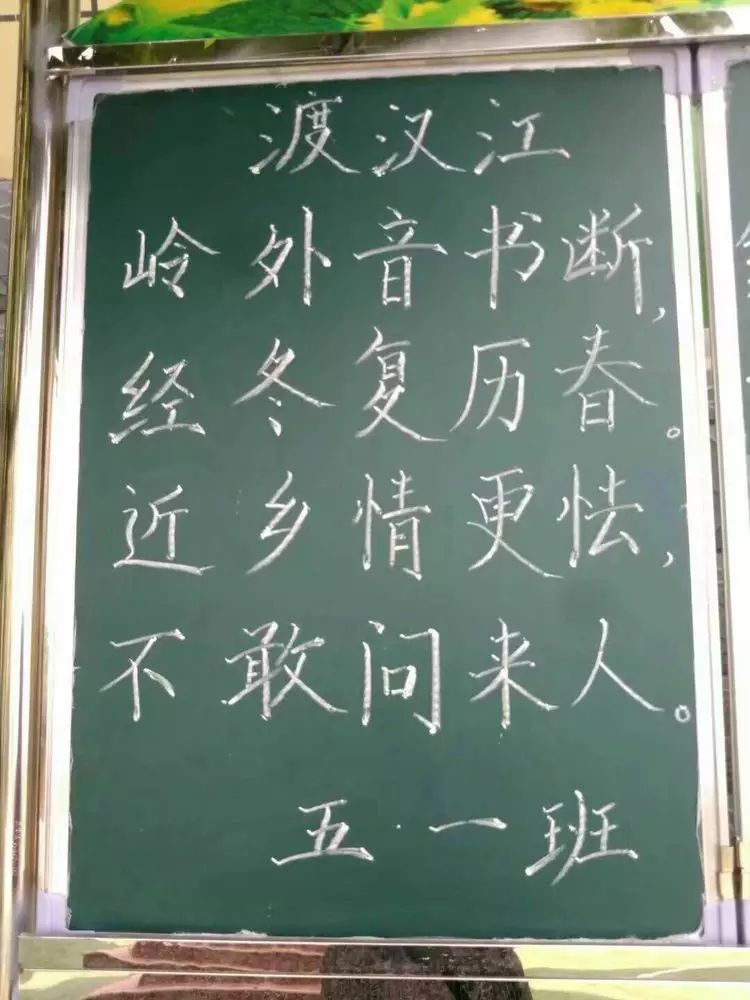 渡汉江
岭外音书断,
经冬复历春。
近乡情更怯,
不敢问来人。
五·一班